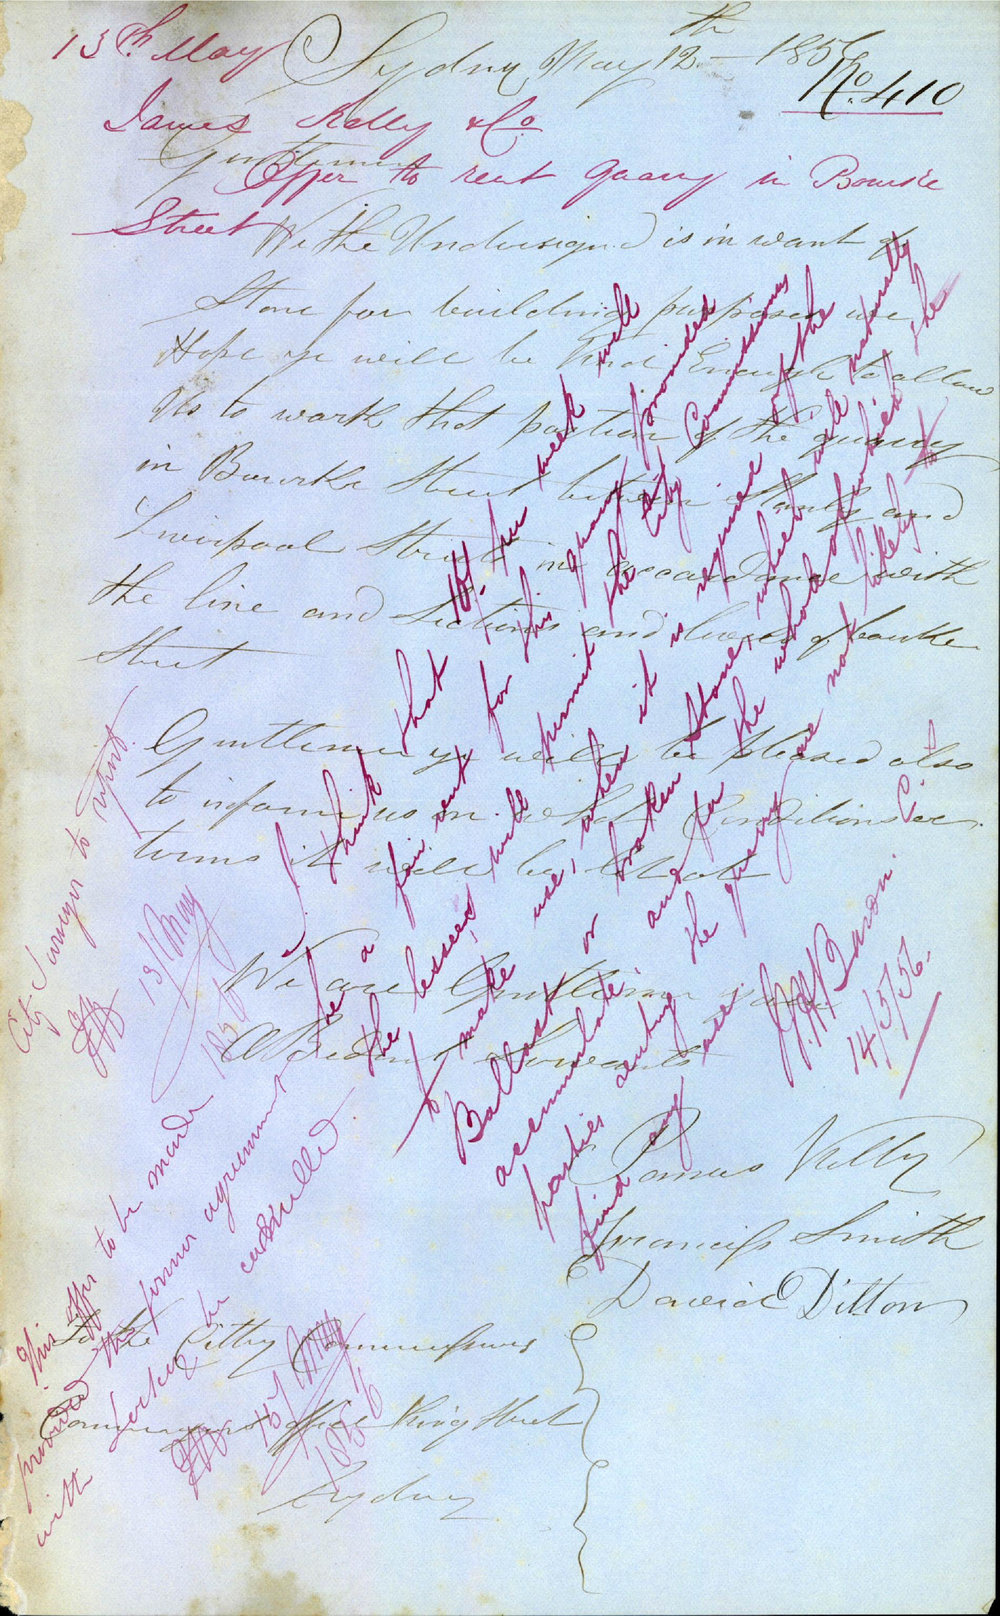 13th May
James Kelly & Co
Offer to rent quarry in Bourke
Street
No. 410
Sydney May 12th - 1856
Gentlemen
We the Undersigned is in want of
Stone for building purposes we
Hope ye will be Kind Enough to allow
Us to work that portion of the quarry
in Bourke Street between Stanley and
Liverpool Street in accordance with
the line and Sections and levels of bourke
Street
Gentlemen ye will be pleased also
to inform us on what Conditions or
terms it will be let at
We are Gentlemen your
Obedient Servants
James Kelly
Francis Smith
David Ditton
To the Citty Commissioners
Commissioners office King Street
Sydney
City Surveyor to report.
13/May
1856
I think that 10/. per week will
be a fair rent for this quarry provided
the lessees will permit the City Commissioners
to make use, when it is required of the
Ballast or broken Stone, which will naturally
accumulate and for the whole of which the
parties renting the quarry are not likely to
find any use
C. S.
14/5/56.
This offer to be made
provided the former agreement
with be cancelled
15/May
1856